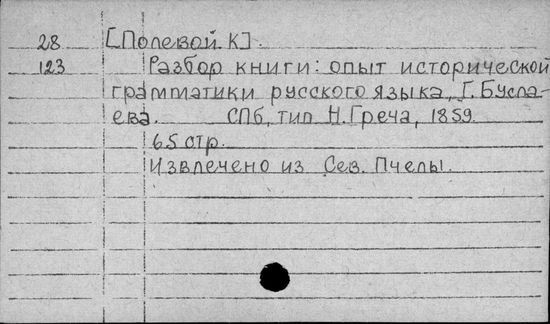 28 [Полевой К].
123 Разбор книги: опыт исторической
грамматики русского языка, Г. Бусла-
ева. СПб, тип. Н. Греча, 1859.
65 стр.
Извлечено из Сев. Пчелы.